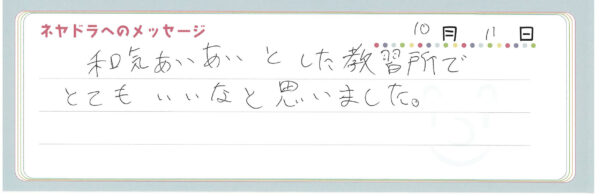 ネヤドラへのメッセージ 10月11日
和気あいあいとした教習所で
とてもいいなと思いました。